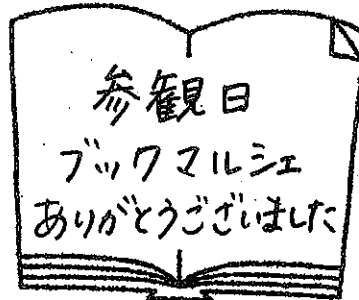 参観日
ブックマルシェ
ありがとうございました